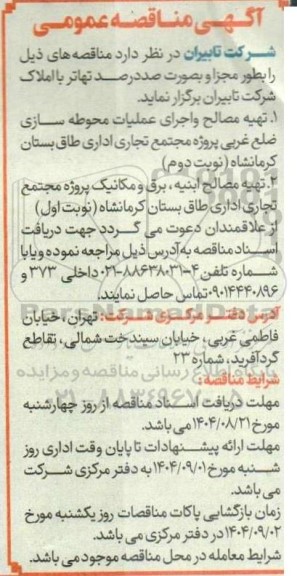 آگهی مناقصه عمومی
شرکت تابیران در نظر دارد مناقصه های ذیل
را بطور مجزا و بصورت صددرصد تهاتر با املاک
شرکت تابیران برگزار نماید.
۱. تهیه مصالح واجرای عملیات محوطه سازی
ضلع غربی پروژه مجتمع تجاری اداری طاق بستان
کرمانشاه (نوبت دوم)
۲. تهیه مصالح ابنیه ، برق و مکانیک پروژه مجتمع
تجاری اداری طاق بستان کرمانشاه (نوبت اول)
از علاقمندان دعوت می گردد جهت دریافت
اسناد مناقصه به آدرس ذیل مراجعه نموده و یا با
شماره تلفن ۴-۸۸۶۳۸۰۳۱-۰۲۱ داخلی ۳۷۳ و
۰۹۰۱۴۴۴۰۸۹۶ تماس حاصل نمایند.
آدرس دفتر مرکزی شرکت: تهران ، خیابان
فاطمی غربی ، خیابان سیندخت شمالی ، تقاطع
گردآفرید، شماره ۲۳
شرایط مناقصه:
مهلت دریافت اسناد مناقصه از روز چهارشنبه
مورخ ۱۴۰۴/۰۸/۲۱ می باشد.
مهلت ارائه پیشنهادات تا پایان وقت اداری روز
شنبه مورخ ۱۴۰۴/۰۹/۰۱ به دفتر مرکزی شرکت
می باشد.
زمان بازگشایی پاکات مناقصات روز یکشنبه مورخ
۱۴۰۴/۰۹/۰۲ در دفتر مرکزی می باشد.
شرایط معامله در محل مناقصه موجود می باشد.